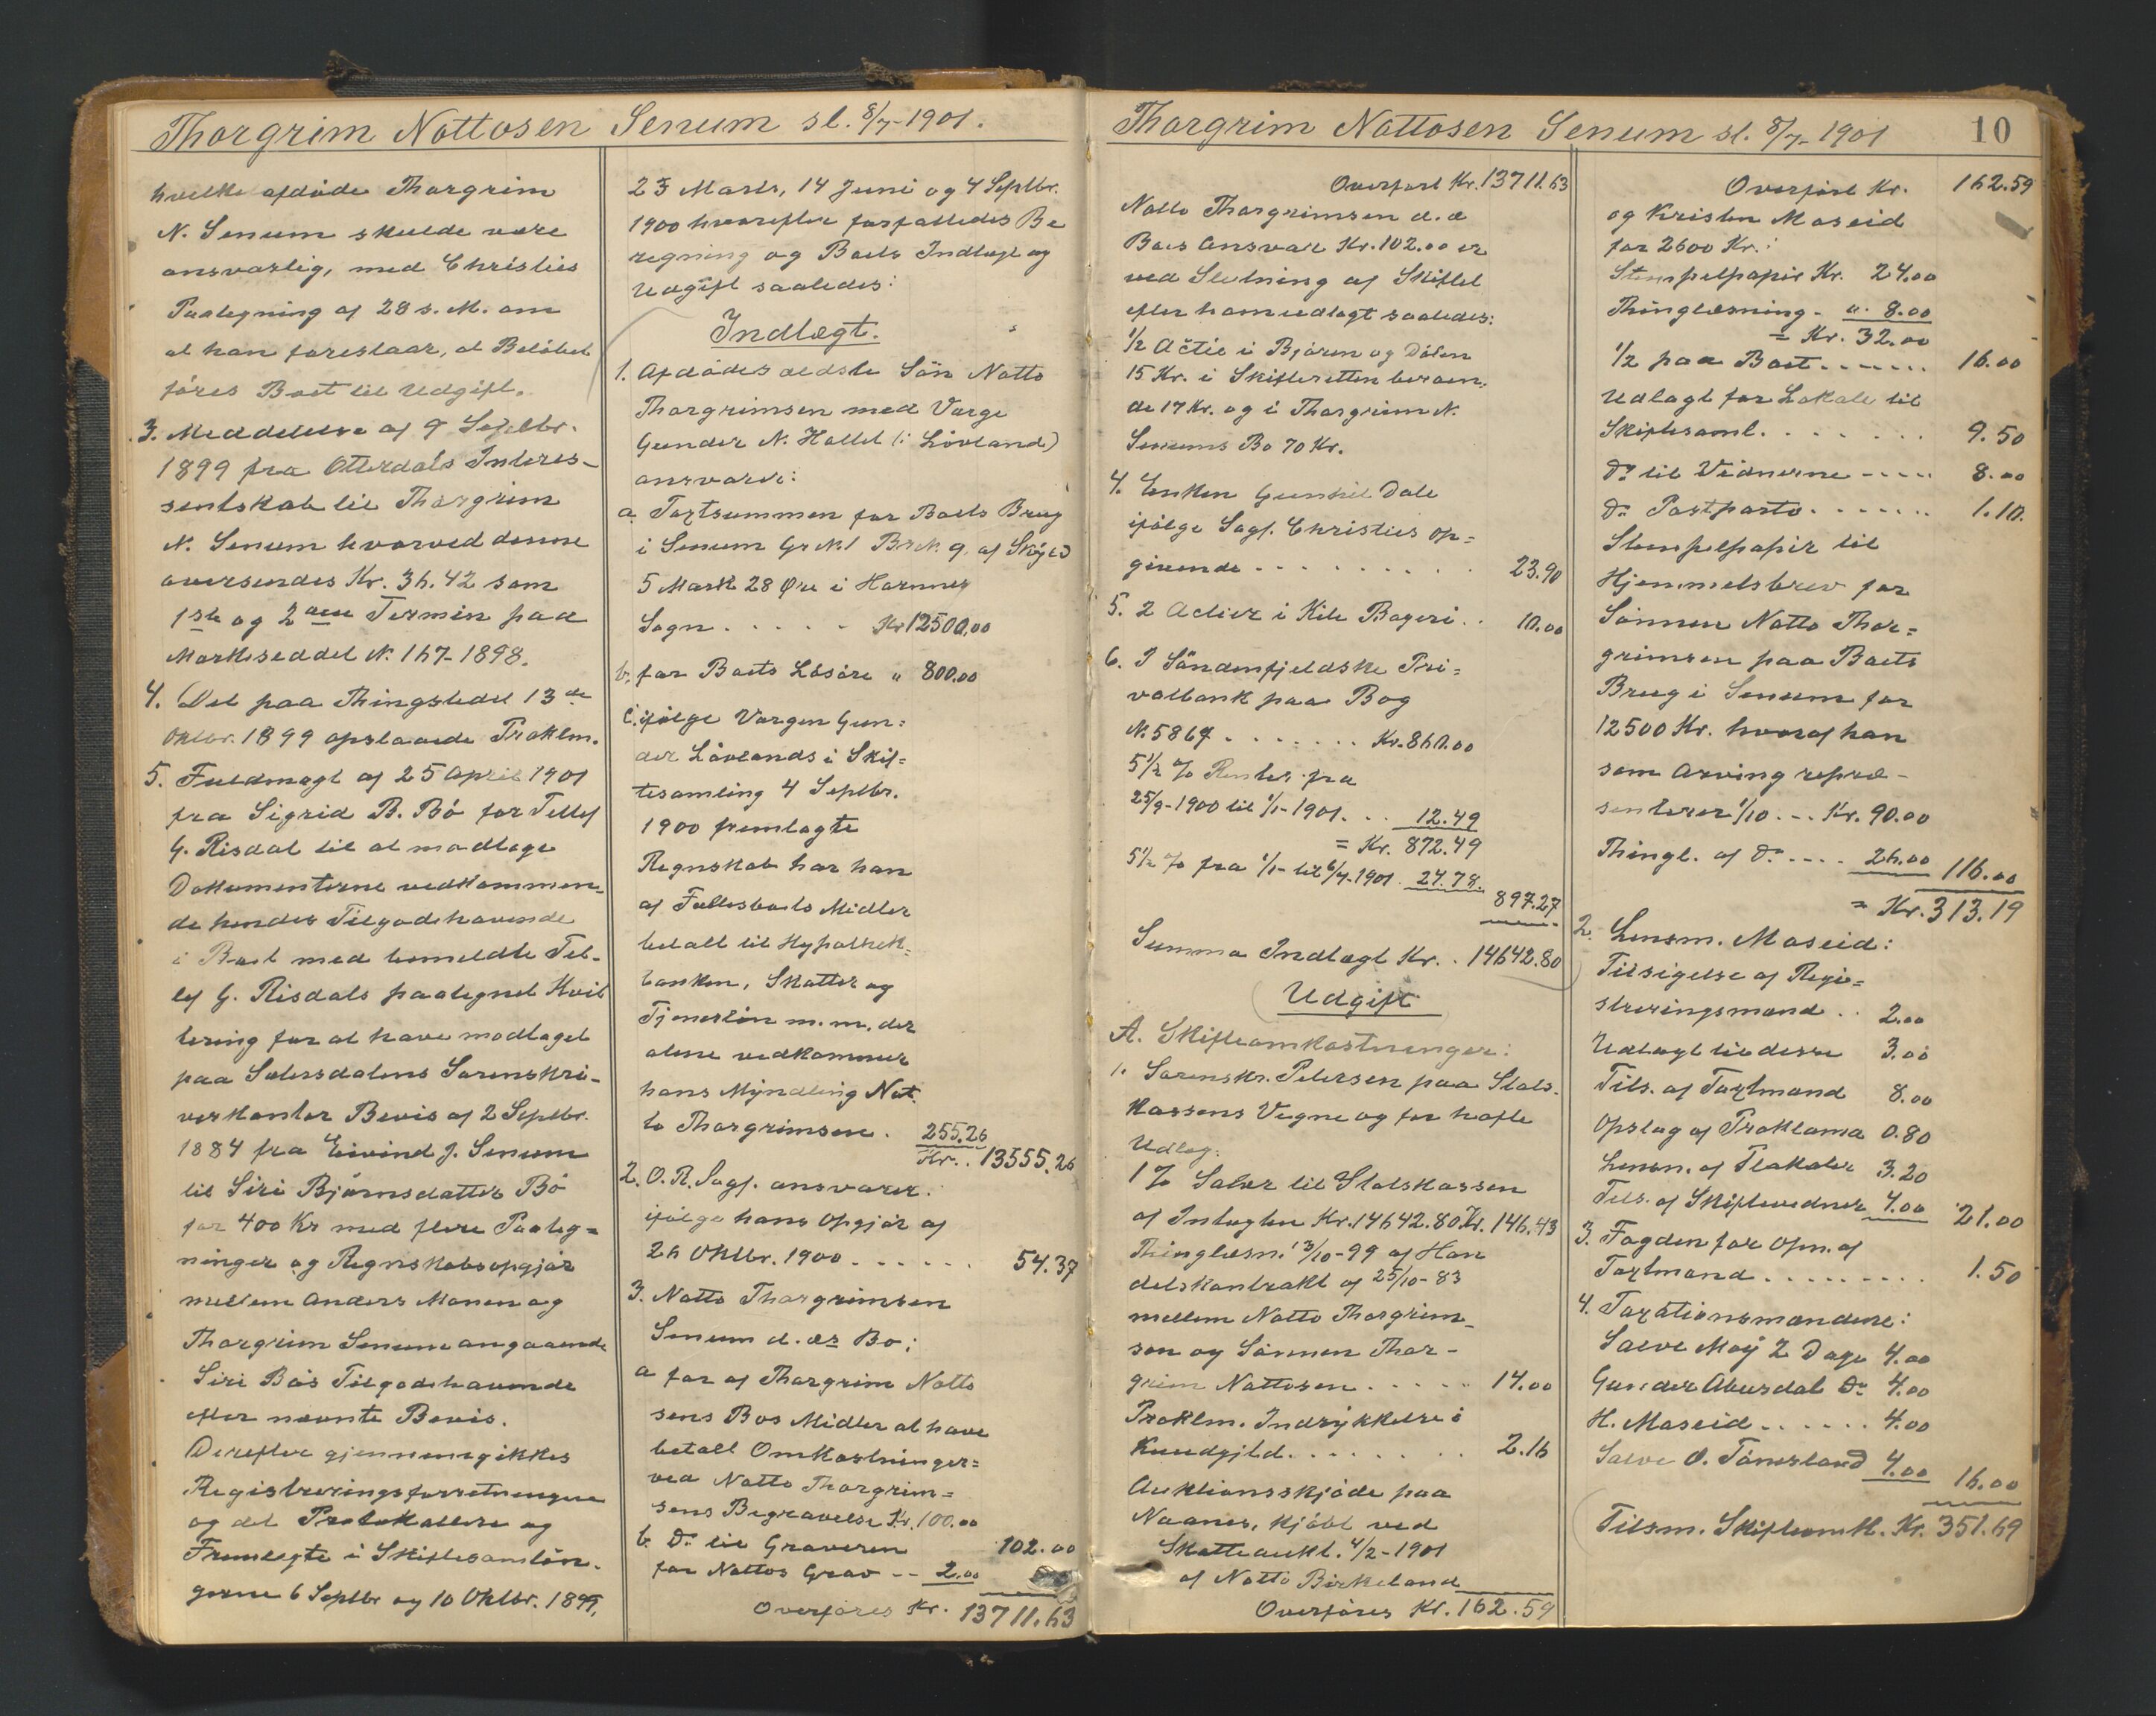 Thorgrim Nottosen Senum sl. 8/7-1901.
hvilke afdöde Thorgrim
N. Senum skulde være
ansvarlig, med Christies
Paategning af 28 s. M. om
at han foreslaar, at Belöbet
föres Boet til Udgift.
3. Meddelelse af 9 Septbr.
1899 fra Otterdals Interes-
sentskab til Thorgrim
N. Senum hvorved denne
oversendes Kr. 36.42 som
1ste og 2den Termin paa
Markseddel N. 167-1898.
4. Det paa Thingstedet 13de
Oktbr. 1899 opslaaede Proklm.
5. Fuldmagt af 25 April 1901
fra Sigrid B. Bö for Tellef
G. Risdal til at modtage
Dokumenterne vedkommen-
de hendes Tilgodehavende
i Boet med bemeldte Tel-
lef G. Risdals paategnet Kvit
tering for at have modtaget
paa Sætersdalens Sorenskri-
verkontor Bevis af 2 Septbr.
1884 fra Eivind J. Senum
til Siri Björnsdatter Bö
for 400 Kr med flere Paateg=
ninger og Regnskabsopgjör
mellem Anders Monen og
Thorgrim Senum angaaende
Siri Bös Tilgodehavende
efter nævnte Bevis.
Derefter gjennemgikkes
Registreringsforretningen
og det Protokollere og
Fremlagte i Skiftesamlin-
gerne 6 Septbr og 10 Oktbr. 1899,
23 Marts, 14 Juni og 4 Septbr.
1900 hvorefter forfattedes Be
regning og Boets Indtægt og
Udgift saaledes:
Indtægt.
1. Afdödes ældste Sön Notto
Thorgrimsen med Værge
Gunder N. Hallet (: Lövland)
ansvarer:
a. Taxtsummen for Boets Brug
i Senum Gr N 1 Br N. 9. af Skyld
5 Mark 28 Öre i Hornnes
Sogn . . . . . Kr 12500.00
b. for Boets Lösöre " 800.00
c. ifölge Værgen Gun=
der Lövlands i Skif=
tesamling 4 Septbr.
1900 fremlagte
Regnskab har han
af Fællesboets Midler
betalt til Hypothek-
banken, Skatter og
Tjenerlön m. m. der
alene vedkommer
hans Myndling Not-
to Thorgrimsen . 255.26
Kr. . 13555.26
2. O. R. Sagf. ansvarer:
ifölge hans Opgjör af
26 Oktbr. 1900 . . . . . . 54.37
3. Notto Thorgrimsen
Senum d. æs Bo:
a for af Thorgrim Notto
sens Bos Midler at have
betalt Omkostninger=
ved Notto Thorgrim=
sens Begravelse Kr. 100.00
b. Do til Graveren
for Nottos Grav -- 2.00 102.00
Overföres Kr. 13711.63
Thorgrim Nottosen Senum sl. 8/7-1901
10
Overfört Kr. 13711.63
Notto Thorgrimsen d. æ
Boes Ansvar Kr. 102.00 er
ved Slutning af Skiftet
efter ham udlagt saaledes:
1/2 Actie i Bjoren og Dölen
15 Kr. i Skifteretten beroen-
de 17 Kr. og i Thorgrim N.
Senums Bo 70 Kr.
4. Enken Gunhil Dale
ifölge Sagf. Christies Op=
givende . . . . . . . . . . 23.90
5. 2 Actier i Kile Bageri . . 10.00
6. I Söndenfjeldske Pri=
vatbank paa Bog
N. 5867 . . . . . . . Kr. 860.00
5 1/2 % Renter fra
25/9-1900 til 1/1-1901. . . 12.49
= Kr. 872.49
5 1/2 % fra 1/1- til 6/7-1901 24.78.
897.27
Summa Indtægt Kr. . 14642.80
Udgift
A. Skifteomkostninger:
1. Sorenskr. Petersen paa Stats.
kassens Vegne og for hafte
Udlæg:
1 % Salær til Statskassen
af Intægten Kr. 14642.80 Kr. 146.43
Thinglæsn. 13/10-99 af Han
delskontrakt af 25/10-83
mellem Notto Thorgrim-
sen og Sönnen Thor-
grim Nottosen . . . . . 14.00
Proklm. Indrykkelse i
Kundgjild. . . . . . . . 2.16
Auktionsskjöde paa
Naanes, kjöbt ved
Skatteaukt. 4/2-1901
af Notto Birkeland
Overföres Kr. 162.59
Overfört Kr. 162.59
og Kristen Moseid
for 2600 Kr.:
Stempelpapir Kr. 24.00
Thinglæsning - ". 8.00
= Kr. 32.00
1/2 paa Boet . . . . . . . 16.00
Udlagt for Lokale til
Skiftesaml. . . . . . . . 9.50
Do til Vidnerne ---- 8.00
Do Postporto . . . . . . . 1.10.
Stempelpapir til
Hjemmelsbrev for
Sönnen Notto Thor=
grimsen paa Boets
Brug i Senum for
12500 Kr. hvoraf han
som Arving repræ-
senterer 1/10 . -- Kr. 90.00
Thingl. af Do . . . . 26.00 116.00
= Kr. 313.19
2. Lensm. Moseid:
Tilsigelse af Regi=
streringsmænd . . 2.00
Udlagt til disse 3.00
Tils. af Taxtmænd 8.00
Opslag af Proklama 0.80
Lensm. af Plakater 3.20
Tils. af Skiftevidner 4.00 21.00
3. Fogden for Opn. af
Taxtmænd . . . . . . . . . 1.50
4. Taxationsmændene:
Salve Moÿ 2 Dage 4.00
Gunder Abusdal Do 4.00
H. Moseid . . . . . . 4.00
Salve O. Tönesland 4.00 16.00
Tilsm. Skifteomk. Kr. 351.69